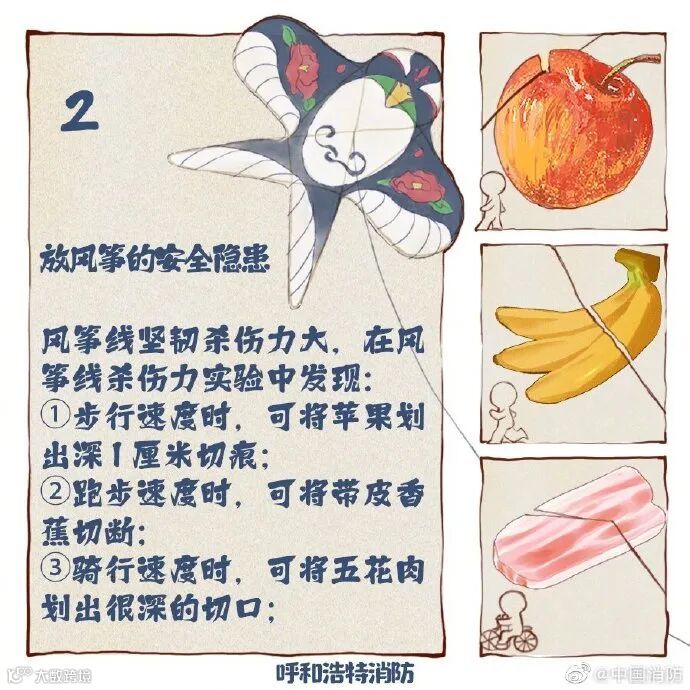 2
放风筝的安全隐患
风筝线坚韧杀伤力大，在风
筝线杀伤力实验中发现：
①步行速度时，可将苹果划
出深1厘米切痕；
②跑步速度时，可将带皮香
蕉切断；
③骑行速度时，可将五花肉
划出很深的切口；
呼和浩特消防
大数跨境
@中国消防